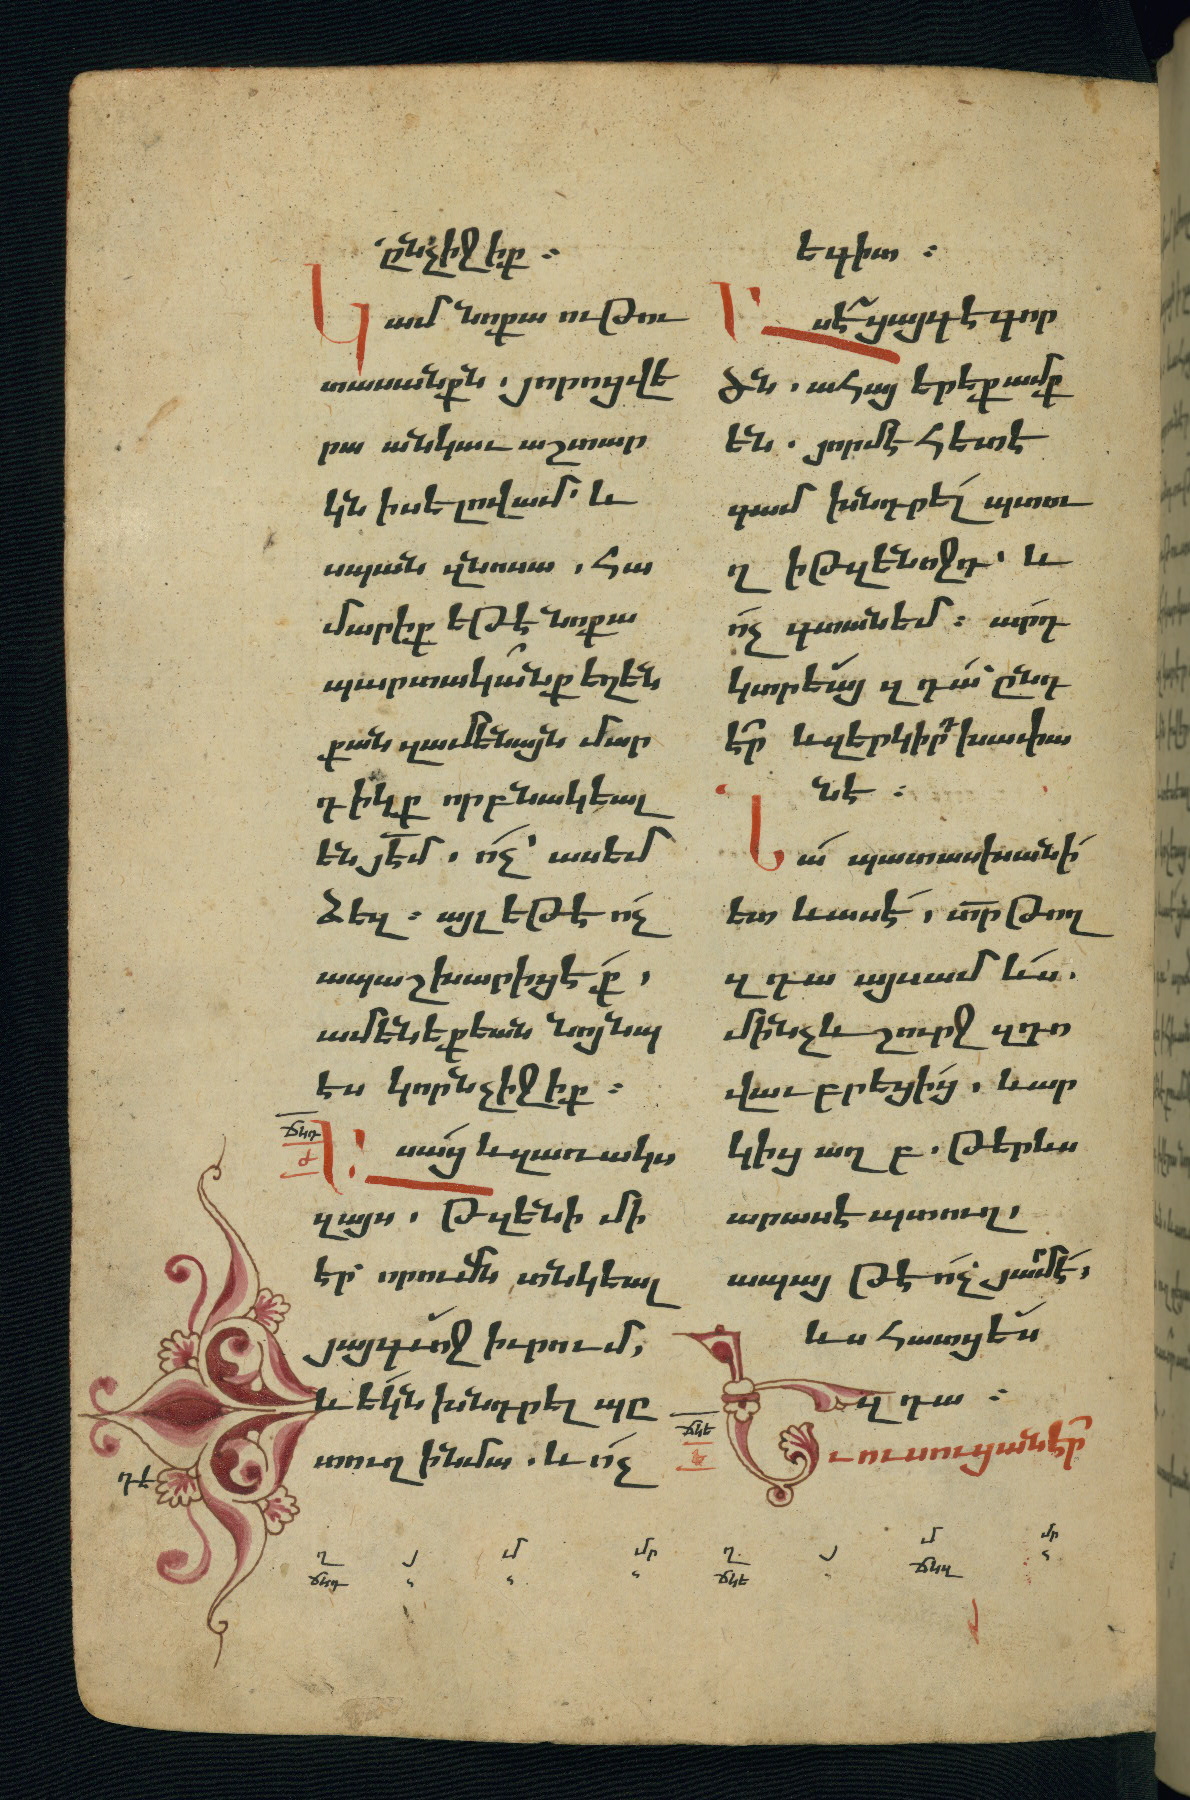 ընչիջիք։
Կամ նոքա ութու
տասանքն, յորոյվե
րա անկաւ աշտար
կն իսելովամ՝ և
սպան զնոսա, Հա
մարիք եԹէ նոքա
պարտականք եղեն
քան զամենայն մար
դիկք որ բնակեալ
են յէմ, ոչ՝ ասեմ
Ձեզ։ այլ եԹէ ոչ
ապաշխարիցէք,
ամենեքեան նոյնպ
ես կորնչիջիք։
Ասաց և զառակս
զայս, Թզենի մի
էր ուրումն տնկեալ
յայգւոջ իւրում,
և եկն խնդրել պը
տուղ ինմա. և ոչ
եգիտ։
Ասէ ցայգեգոր
ծն, աՀայ երեքամք
են. յորմէ Հետէ
գամ խնդրել պտու
ղ իԹզենւոջդ՝ և
ոչ գտանեմ։ արդ
կտրեայ զդա՝ ընդ
էր և զերկիրդ խափա
նէ։
Նա պատասխանի
ետ և ասէ, տր Թող
զդա այսամ ևս.
մինչև շուրջ զդո
վաւ բրեցից, և ար
կից աղբ. Թերևս
արասցէ պտուղ,
ապայ Թէ ոչ յամէ,
ևս Հատցես
զդա։
Եւ ուսուցանէր
ճկդ
ճկե
դէ
ղ յ մ մր ղ յ մ մր
ճկդ ճկե ճկզ